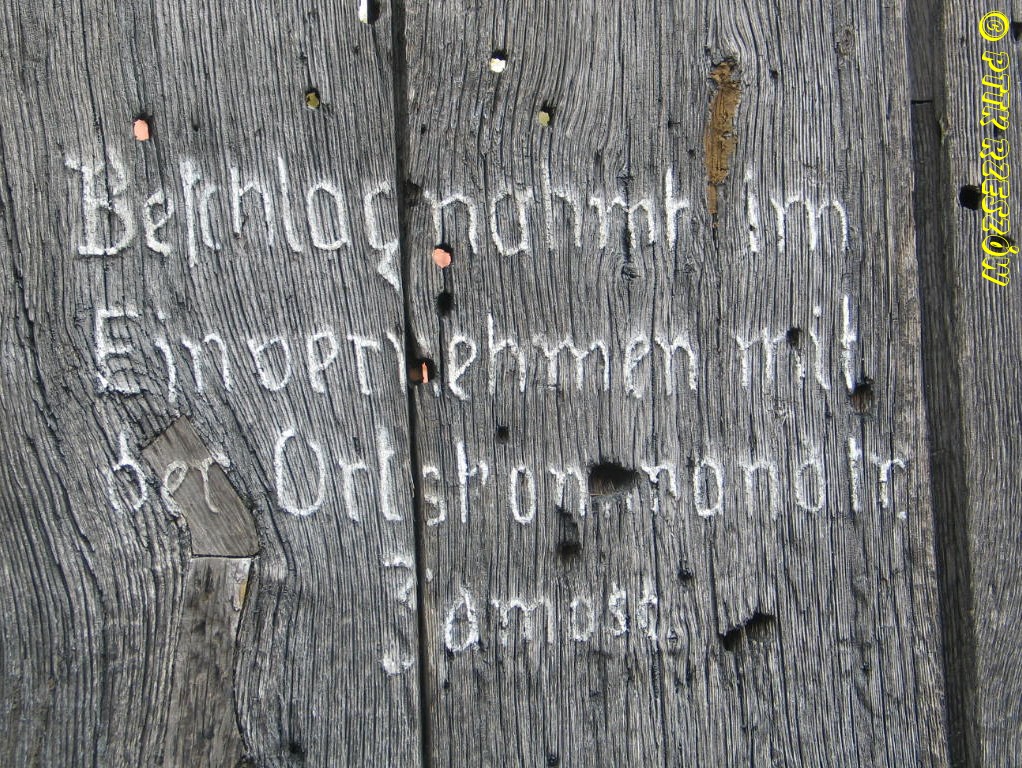 Beschlagnahmt im
Einvernehmen mit
der Ortskommandtr.
Zamost.
© PTTK RZESZÓW